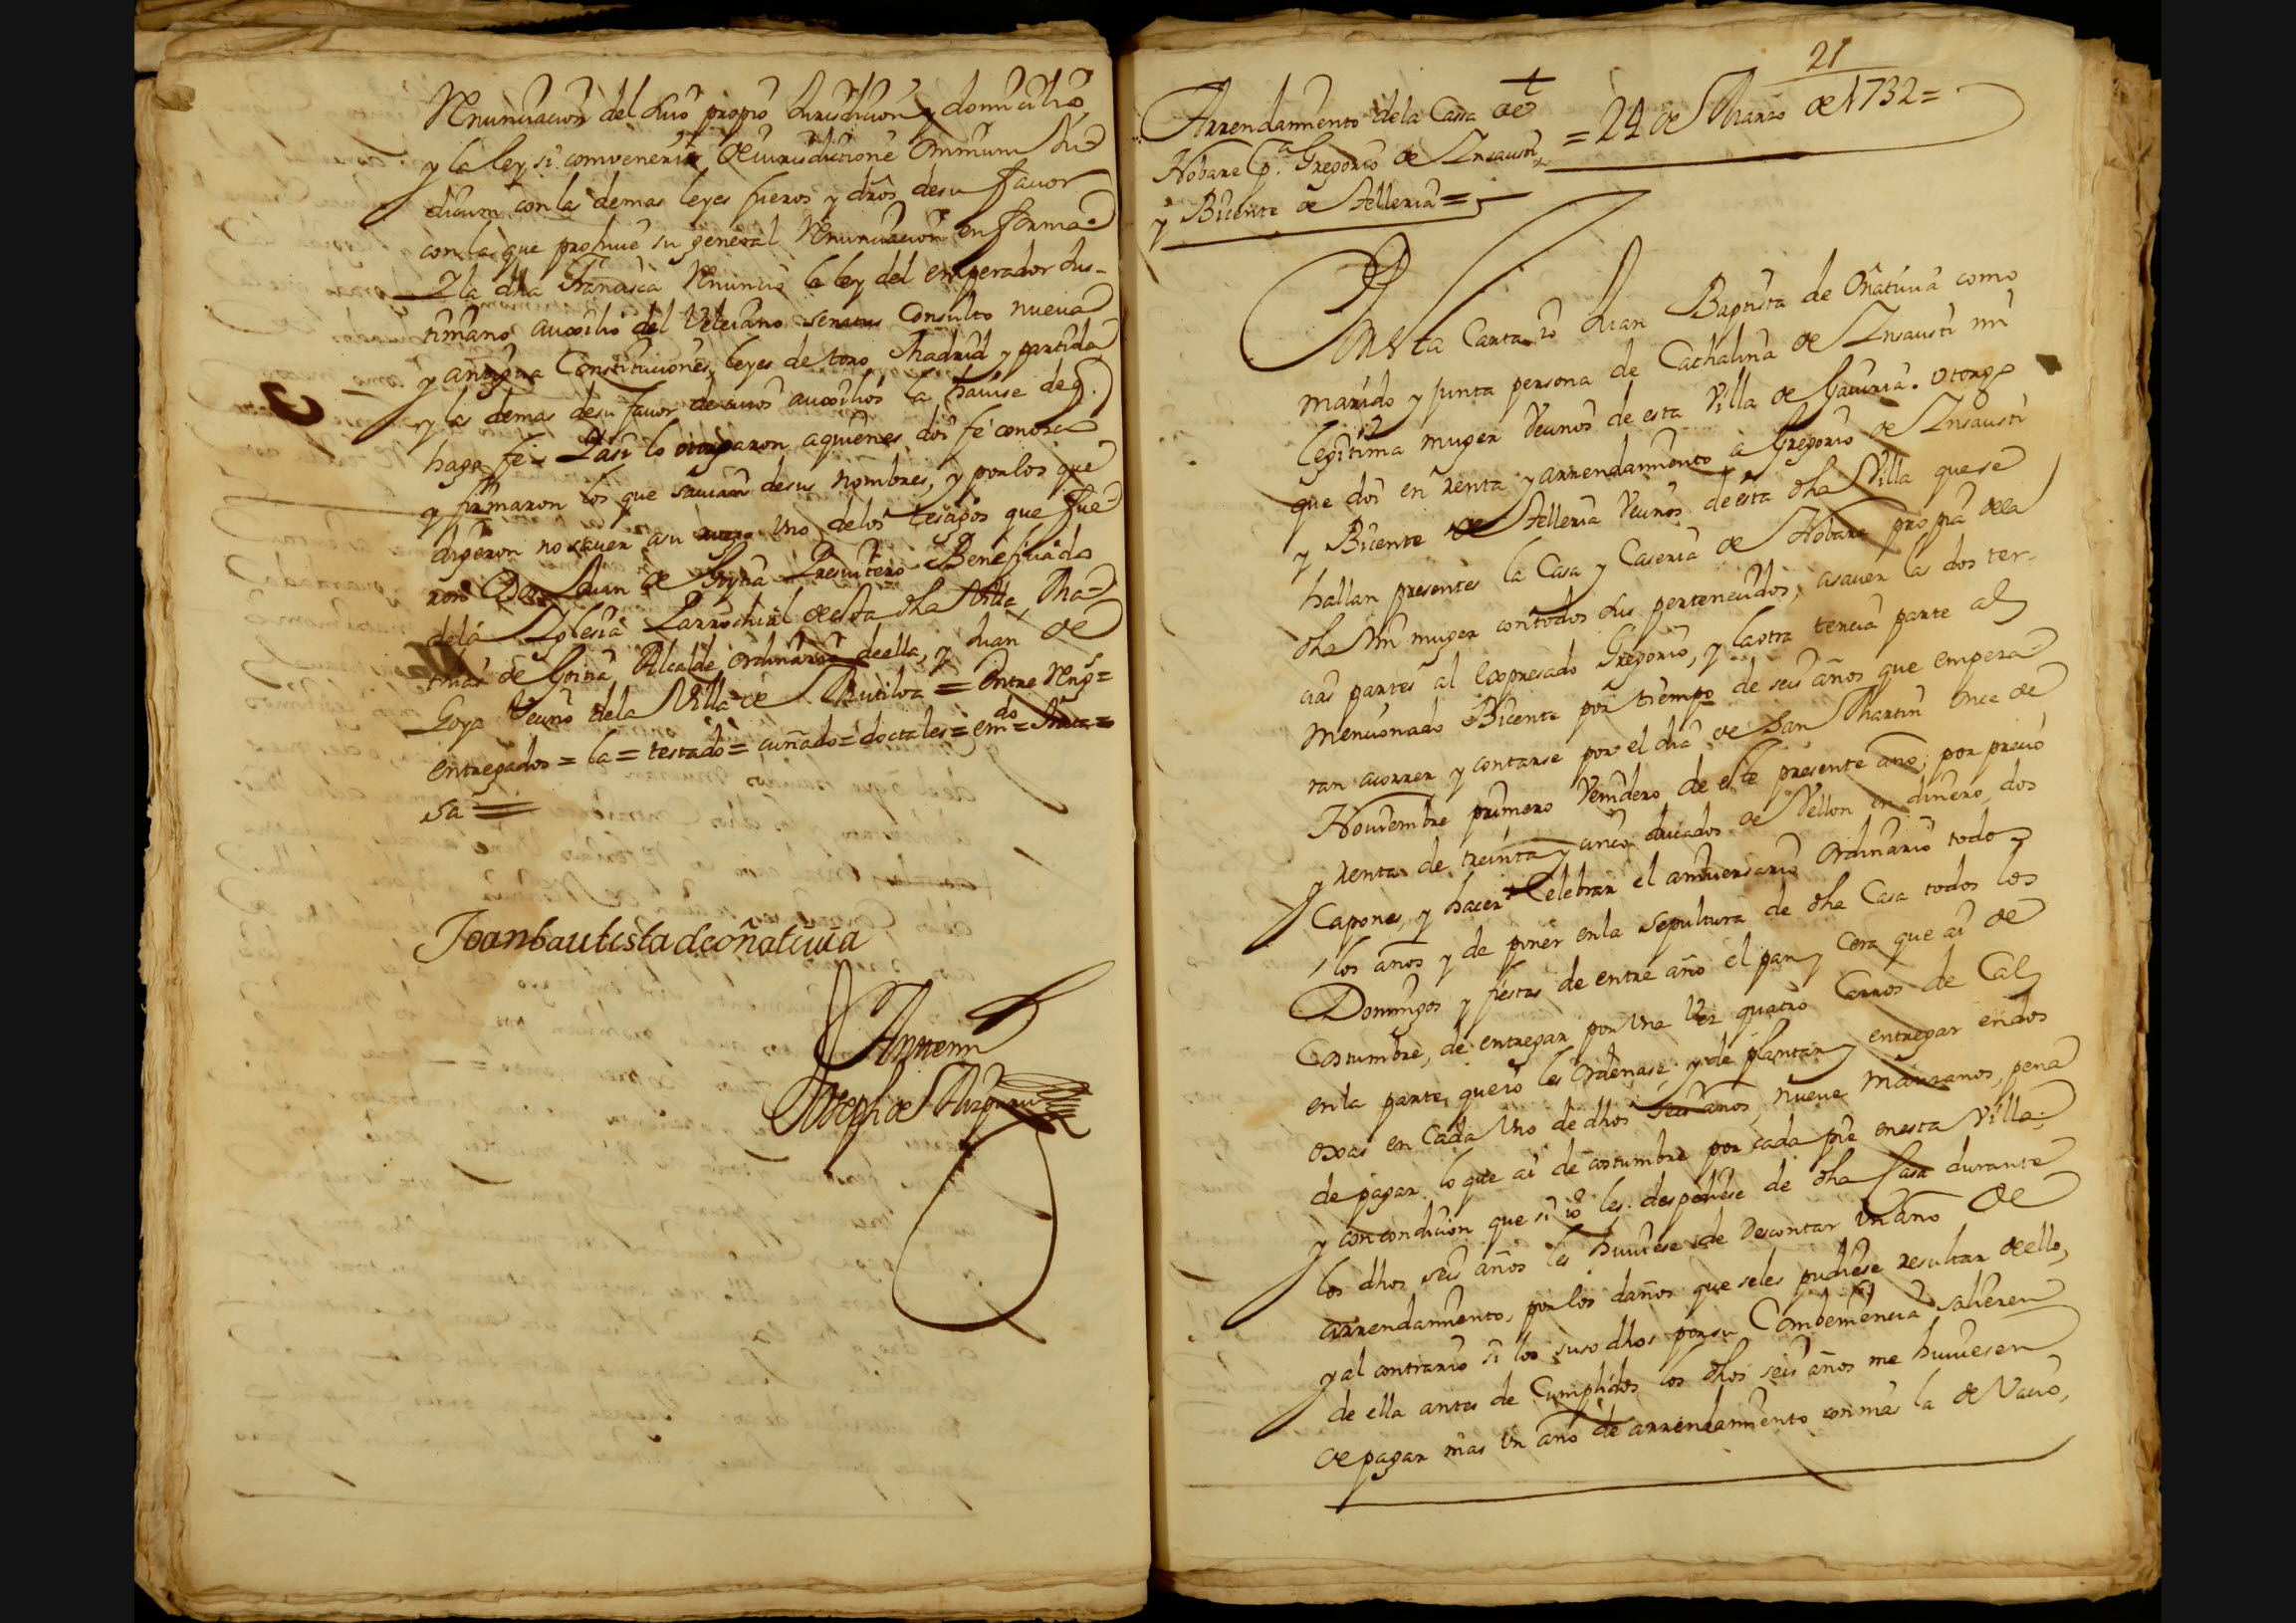 Renunciacion del suio propio Jurisdicion y domicilio
y la ley si comvenerit de iurisdictione Omnium Ju-
dicum con las demas leyes fueros y dros desu favor
con la que prohiue su general Renunciacion en forma
Y la dha Franasca Renuncio la ley del emperador Jus-
tiniano auxilio del Veleiano senatus Consulto nueua
y antigua Constituciones leyes de toro Madrid y partida
y las demas desu favor de cuios auxilios la hauise de q.
haga fe = Y asi lo otorgaron aquienes doi fe conosco
y firmaron los que sauian desus nombres, y por los que
digeron no sauer asu ruego Uno delos testigos que fue
ron Don Juan de Goytia Presuitero Beneficiado
dela Yglesia Parrochial desta dha Villa, Tho-
mas de Goitia Alcalde ordinario deella, y Juan de
Goya Vecino dela Villa de Mutiloa = Entre Reng.s =
entregados = la = testado = cuñado = doctales = em.do =
sa =
Joanbautista de oñatiuia
Antemi
Joseph de Aizpuru
21
Arrendamiento dela Casa de
Nobare p.a Gregorio de Ynsausti,
y Bicente de Telleria =
= 24 de Marzo de 1732 =
En esta Carta io Juan Baptista de Oñatiuia como
marido y junta persona de Cathalina de Ynsausti mi
legitima muger Vecinos de esta Villa de Gauiria. otorgo
que doi en renta y arrendamiento a Gregorio de Ynsausti
y Bicente de Telleria Vecinos de esta dha Villa que se
hallan presentes la Casa y Caseria de Nobare propia dela
dha mi muger contodos sus pertenecidos, asauer las dos ter-
cias partes al expresado Gregorio, y la otra tercia parte al
mencionado Bicente por tiempo de seis años que empeza
ran acorrer y contarse por el dia de San Martin Once de
Nouiembre primero Venidero de este presente año; por precio
y renta de treinta y cinco ducados de Vellon en dinero, dos
Capones, y hacer Celebrar el aniuersario Ordinario todo
s los años y de poner enla sepultura de dha Casa todos los
Domingos y fiestas de entre año el pan y Cera que ai de
Costumbre, de entregar por Una Vez quatro Carros de Cal
enla parte, que io les Ordenase; y de plantar y entregar endos
oxas en Cada Uno de dhos seis años, nueue manzanos, pena
de pagar lo que ai de costumbre por cada pie enesta Villa;
y con condicion que si io les despediese de dha Casa durante
los dhos seis años les huuiese de Descontar Un año de
arrendamiento, por los daños que seles pudiese resultar deello,
y al contrario si los suso dhos por su Combeniencia salieren
de ella antes de Cumplidos los dhos seis años me huuiesen
de pagar mas Un año de arrendamiento con mas la de Vacio,